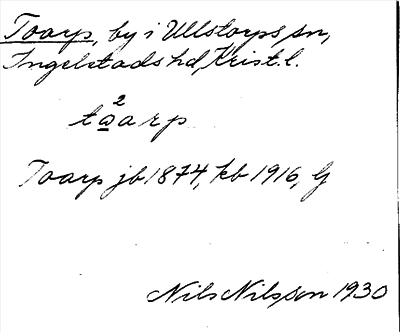 Toarp, by i Ullstorps sn,
Ingelstads hd, Krist. l.
2
tωarp
Toarp jb 1874, kb 1916, G
Nils Nilsson 1930